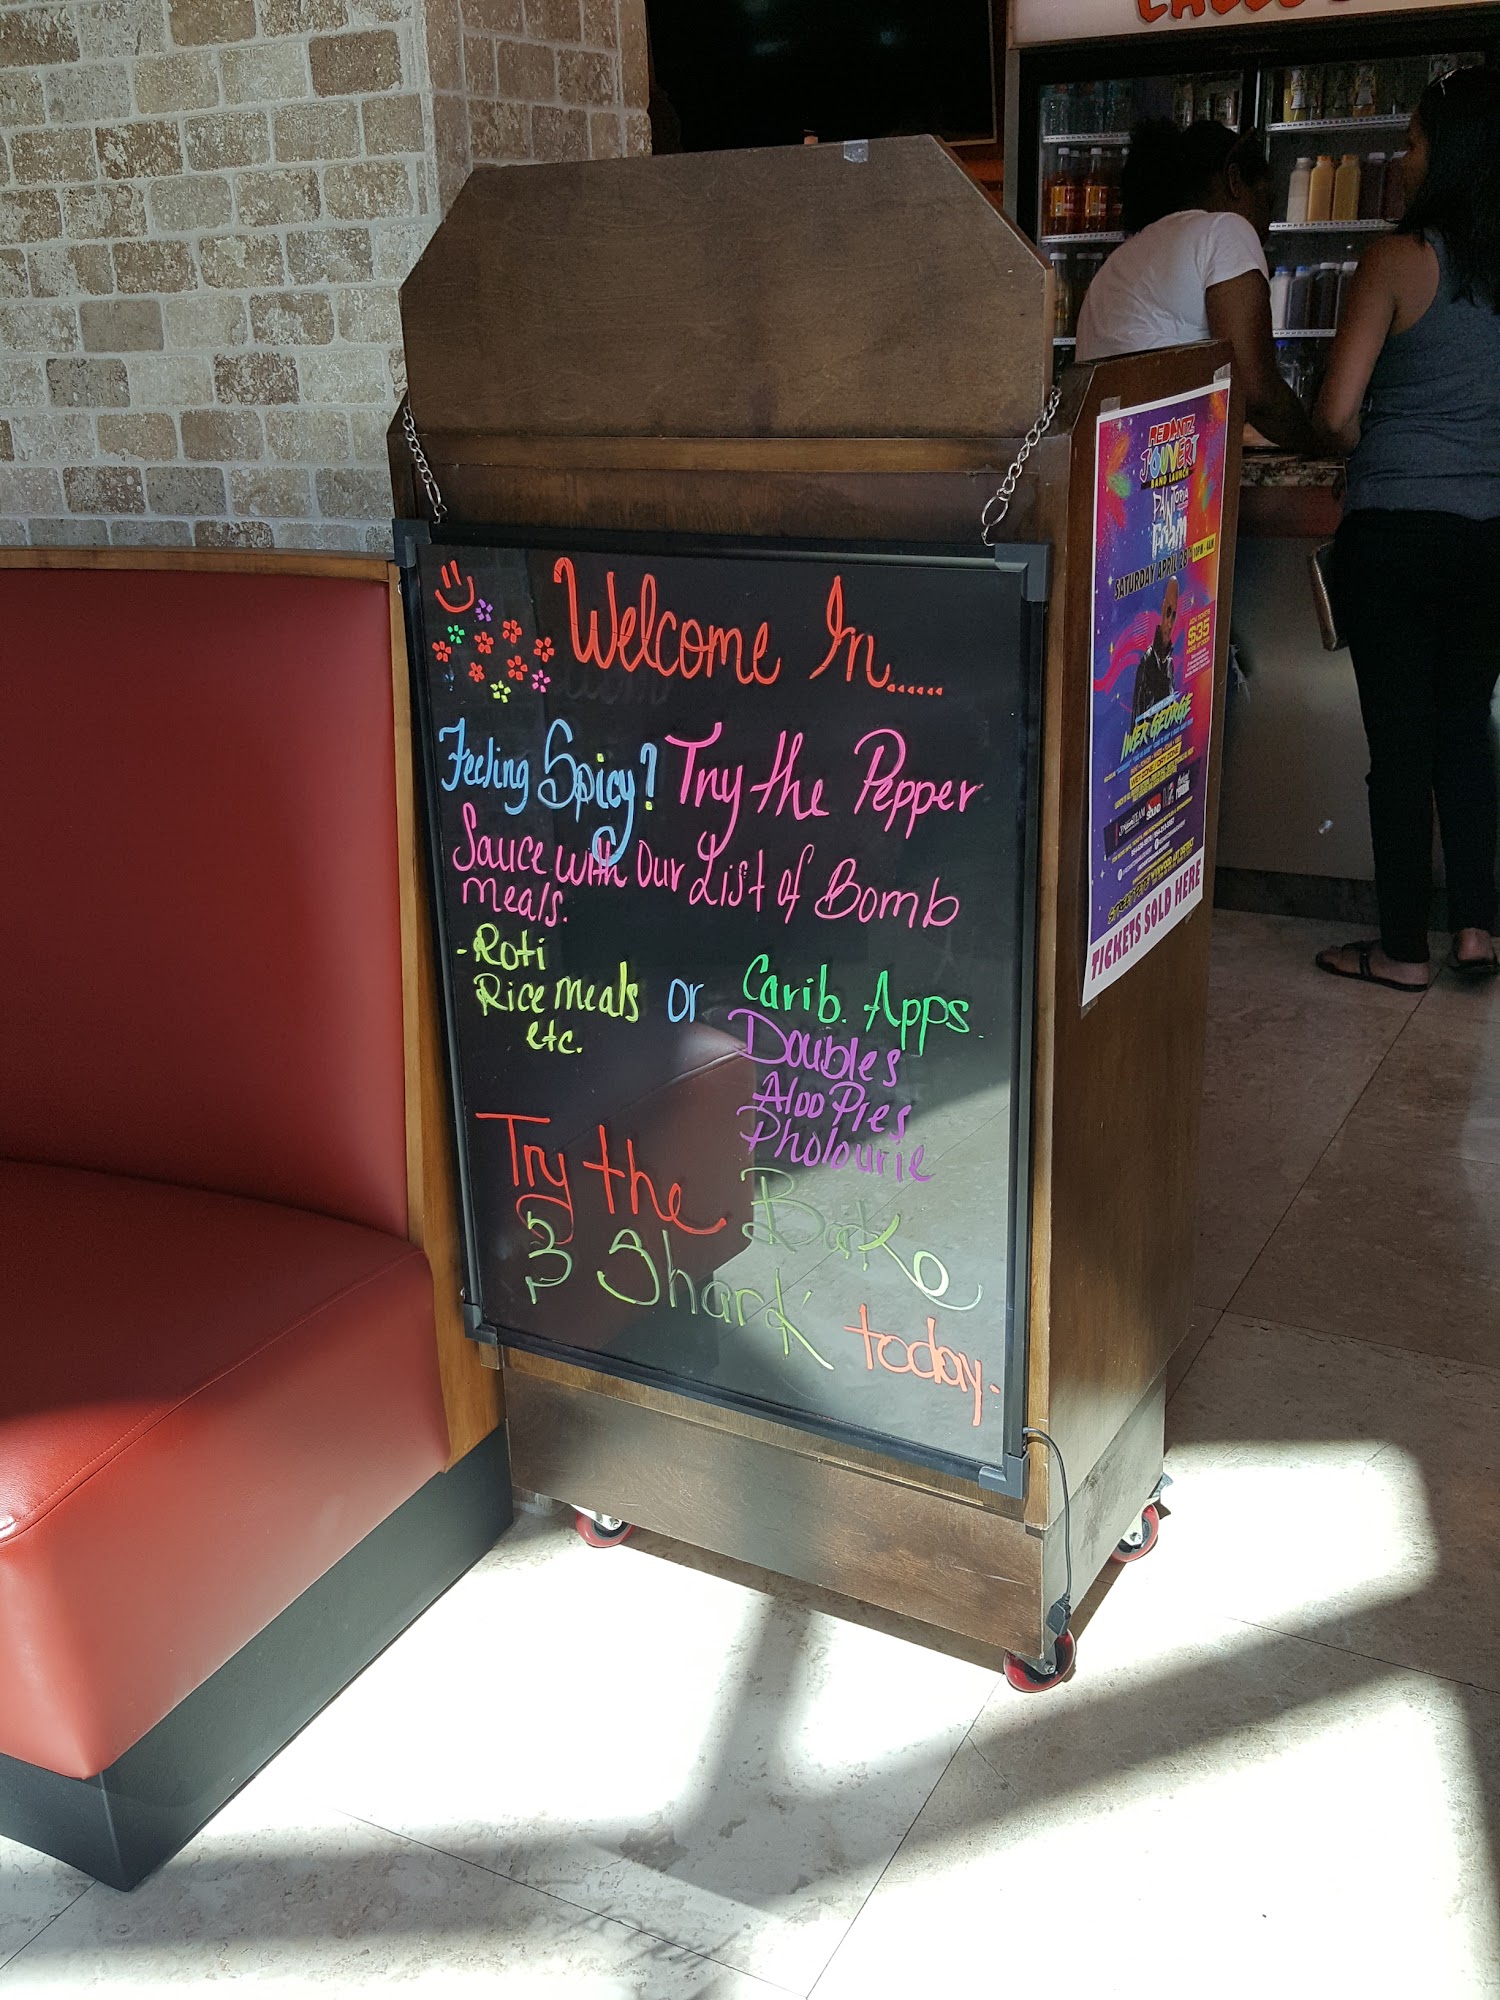 Welcome In......
Feeling Spicy? Try the Pepper
Sauce with our List of Bomb
meals.
- Roti
Rice meals or Carib. Apps
etc.
Doubles
Aloo Pies
Pholourie
Try the Bake
& Shark today.
REDANTZ
J'OUVERT
BAND LAUNCH
PAINTOPIA
FOAM
SATURDAY APRIL 28TH 10PM - 4AM
$35
IWER GEORGE
TICKETS SOLD HERE